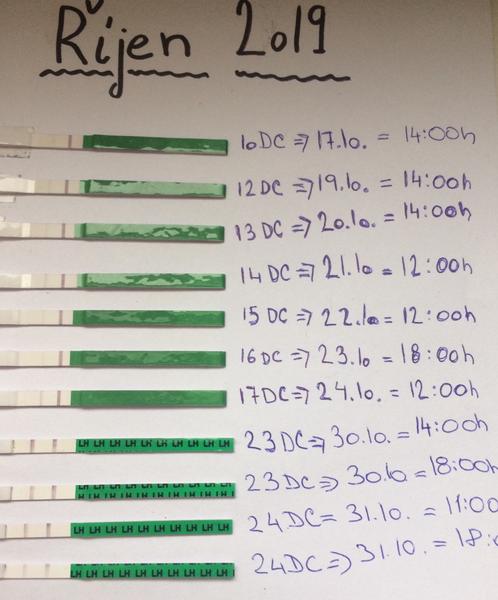 Říjen 2019
10DC => 17.10. = 14:00h
12DC => 19.10. = 14:00h
13DC => 20.10. = 14:00h
14DC => 21.10 = 12:00h
15DC => 22.10 = 12:00h
16DC => 23.10 = 18:00h
17DC => 24.10. = 12:00h
LH LH LH LH LH LH LH LH LH LH 23DC => 30.10. = 14:00h
LH LH LH LH LH LH LH LH LH 23DC => 30.10 = 18:00h
LH LH LH LH LH LH LH LH LH LH 24DC = 31.10. = 11:00
LH LH LH LH LH LH LH LH LH 24DC => 31.10. = 18: